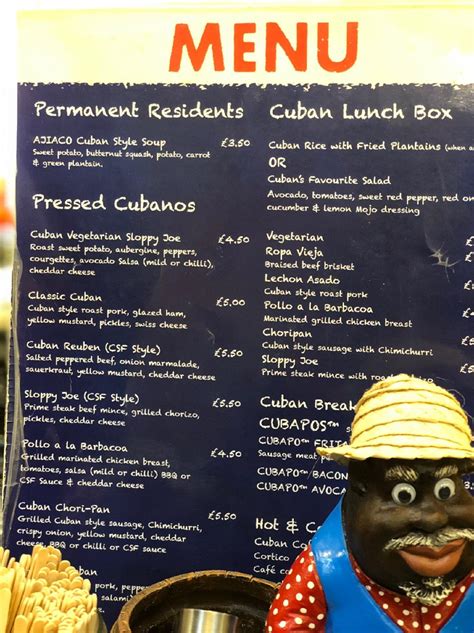 MENU
Permanent Residents
AJIACO Cuban Style Soup £3.50
Sweet potato, butternut squash, potato, carrot
& green plantain.
Pressed Cubanos
Cuban Vegetarian Sloppy Joe £4.50
Roast sweet potato, aubergine, peppers,
courgettes, avocado Salsa (mild or chilli),
cheddar cheese
Classic Cuban £5.00
Cuban style roast pork, glazed ham,
yellow mustard, pickles, swiss cheese
Cuban Reuben (CSF Style) £5.50
Salted peppered beef, onion marmalade,
sauerkraut, yellow mustard, cheddar cheese
Sloppy Joe (CSF Style) £5.50
Prime steak beef mince, grilled chorizo,
pickles, cheddar cheese
Pollo a la Barbacoa £4.50
Grilled marinated chicken breast,
tomatoes, salsa (mild or chilli) BBQ or
CSF Sauce & cheddar cheese
Cuban Chori-Pan £5.50
Grilled Cuban style sausage, Chimichurri,
crispy onion, yellow mustard, cheddar
cheese, BBQ or chilli or CSF sauce
ban
pork, pepper,
salami)
Cuban Lunch Box
Cuban Rice with Fried Plantains (when a
OR
Cuban's Favourite Salad
Avocado, tomatoes, sweet red pepper, red on
cucumber & lemon Mojo dressing
Vegetarian
Ropa Vieja
Braised beef brisket
Lechon Asado
Cuban style roast pork
Pollo a la Barbacoa
Marinated grilled chicken breast
Choripan
Cuban style sausage with Chimichurri
Sloppy Joe
Prime steak mince with roast
Cuban Break
CUBAPOS™
CUBAPO™ FRITA
Sausage meat
CUBAPO™/BACON
CUBAPO™ AVOCA
Hot & C
Cuban Coff
Cortico
Café co